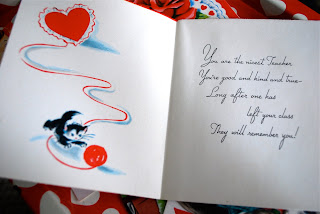 You are the nicest Teacher
You're good and kind and true-
Long after one has
left your class
They will remember you!